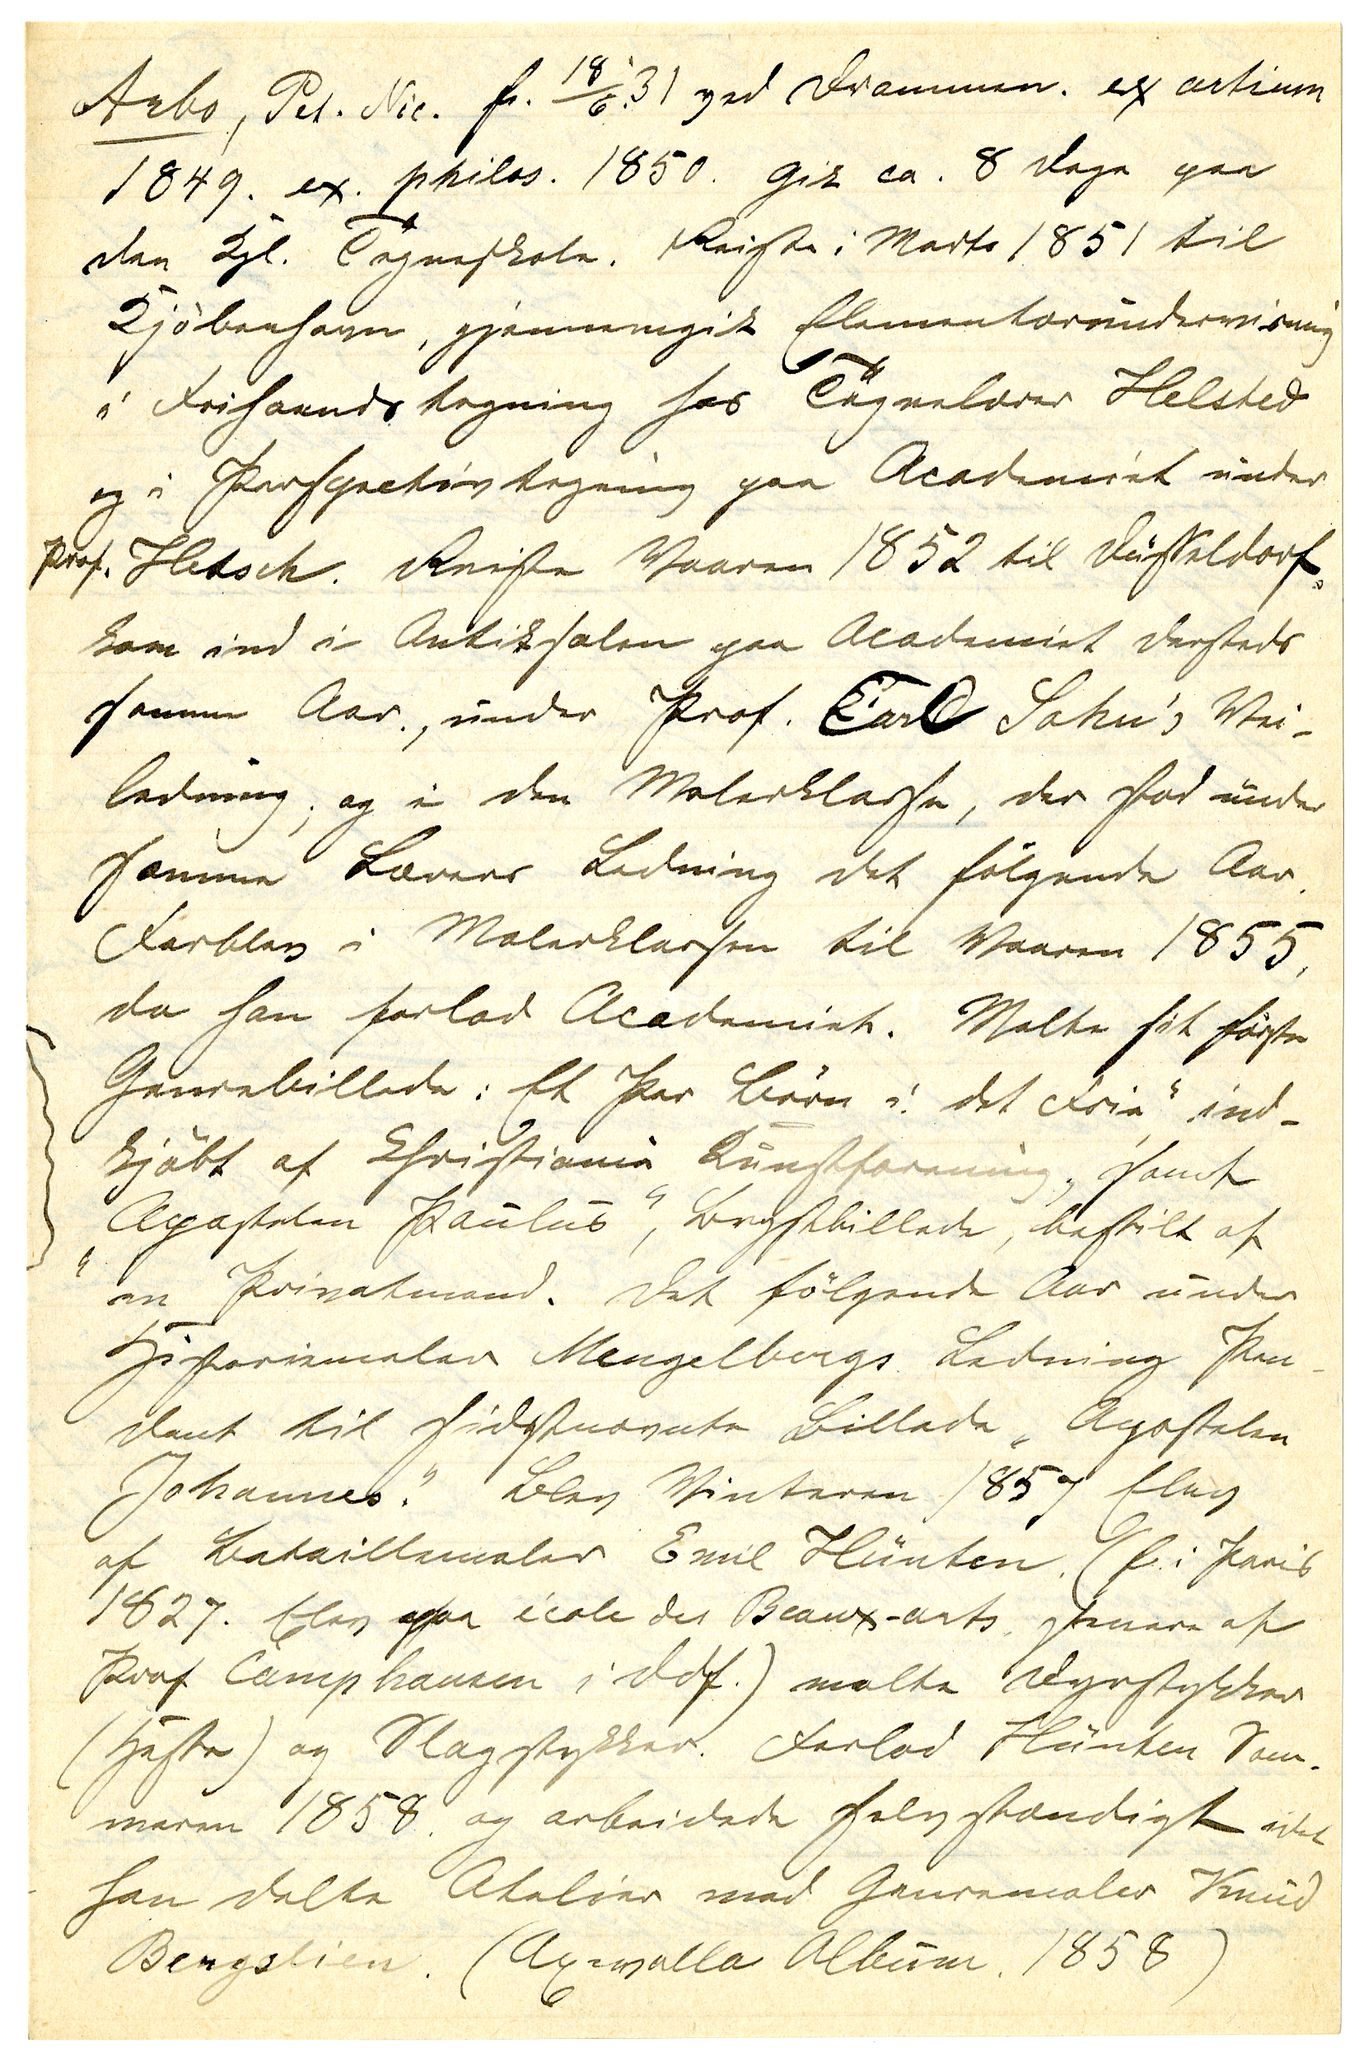 Arbo, Pet. Nic. f. 18/6.31 ved Drammen. ex artium
1849. ex. philos. 1850. gik ca. 8 Dage paa
den Kgl. Tegneskole. Reiste i Marts 1851 til
Kjöbenhavn, gjennemgik Elementærundervisning
i Frihaandstegning hos Tegnelærer Helsted
og i Perspectivtegning paa Academiet under
Prof. Hetsch. Reiste Vaaren 1852 til Düsseldorf,
kom ind i Antiksalen paa Academiet dersteds
samme Aar., under Prof. Carl Sohn's Vei-
ledning, og i den Malerklasse, der stod under
samme Lærers Ledning det fölgende Aar.
Forblev i Malerklassen til Vaaren 1855,
da han forlod Academiet. Malte sit förste
Genrebillede: Et Par Börn i det Frie" ind-
kjöbt af Christiania Kunstforening, samt
"Apostelen Paulus", Brystbillede, bestilt af
en Privatmand. Det fölgende Aar under
Historiemaler Mengelbergs Ledning Pen-
dant til sidstnævnte Billede „Apostelen
Johannes." Blev Vinteren 1857 Elev
af Bataillemaler Emil Hünten. (f. i Paris
1827. Elev paa école des Beaux-arts, senere af
Prof Camphausen i Ddf.) malte Dyrstykker
(Heste) og Slagstykker. Forlod Hünten Som-
meren 1858. og arbeidede selvstændigt idet
han delte Atelier med Genremaler Knud
Bergslien. (Axevalla Album. 1858)